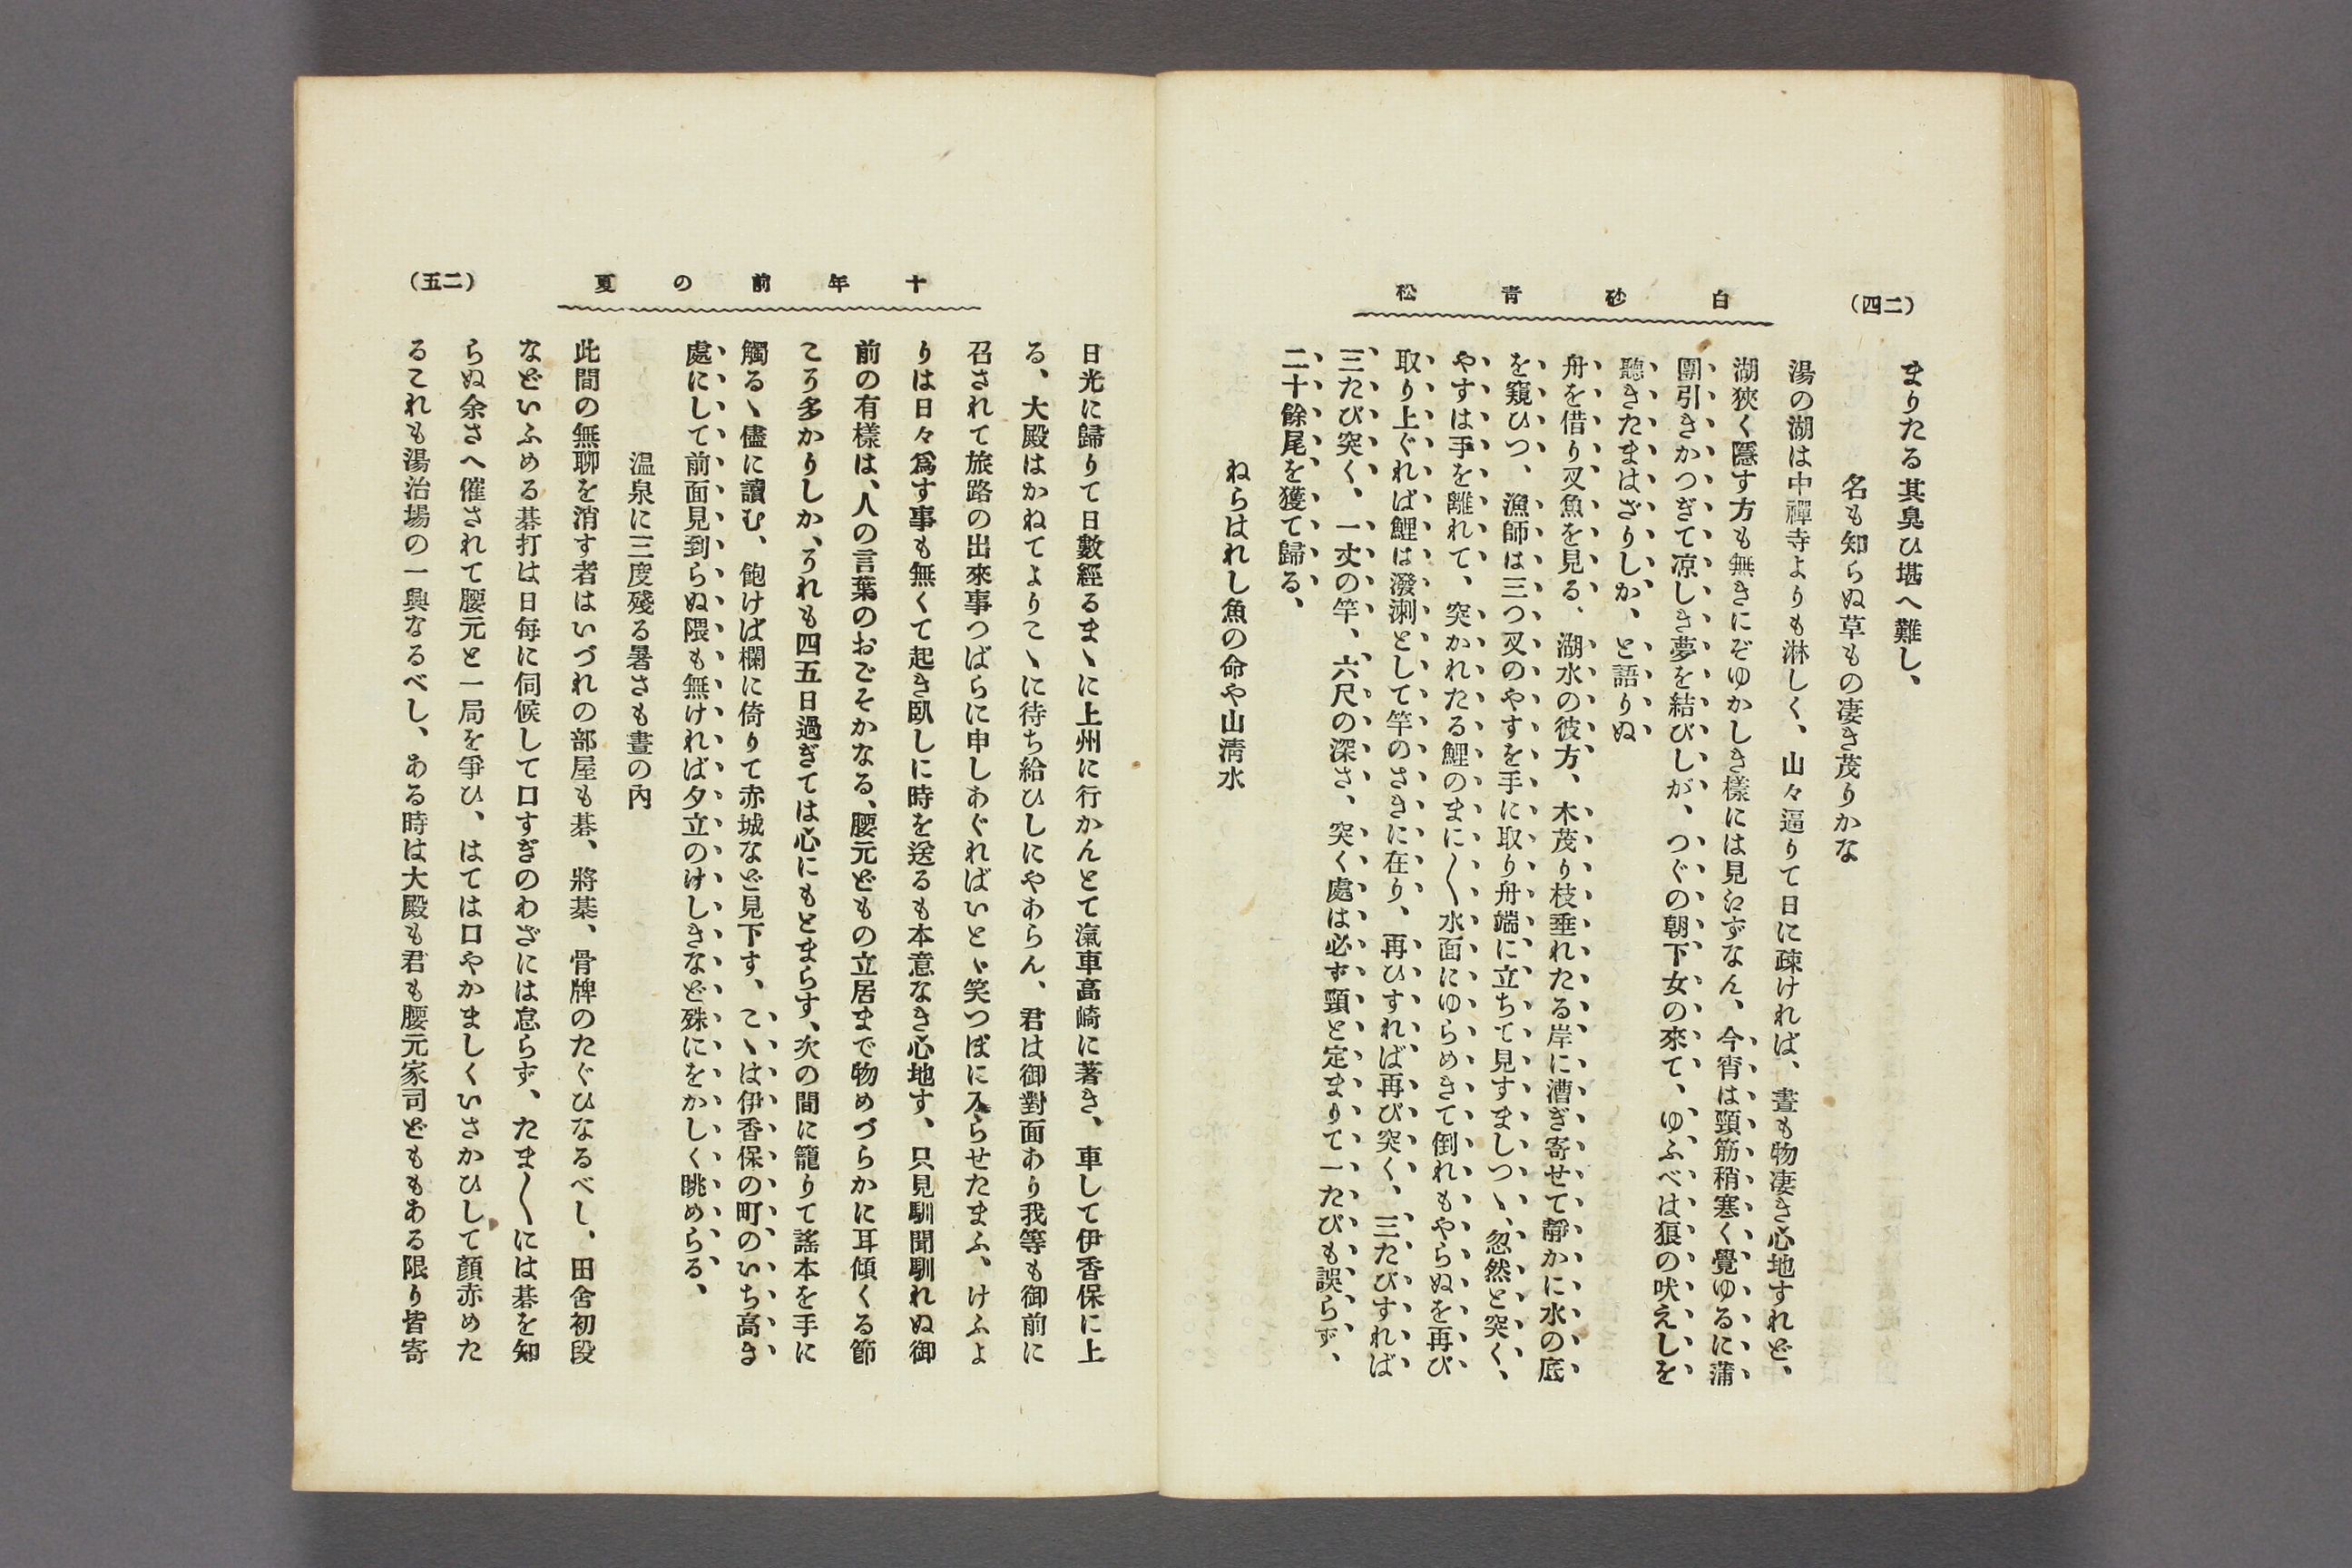 (二四)
白砂青松
まりたる其臭ひ堪へ難し、
名も知らぬ草もの凄き茂りかな
湯の湖は中禪寺よりも淋しく、山々逼りて日に疎ければ、晝も物凄き心地すれど、
湖狹く隱す方も無きにぞゆかしき樣には見江ずなん、今宵は頸筋稍塞く覺ゆるに蒲
團引きかつぎて凉しき夢を結びしが、つぐの朝下女の來て、ゆふべは狼の吠えしを
聽きたまはざりしか、と語りぬ
舟を借り叉魚を見る、湖水の彼方、木茂り枝垂れたる岸に漕ぎ寄せて靜かに水の底
を窺ひつ、漁師は三つ叉のやすを手に取り舟端に立ちて見すましつゝ、忽然と突く、
やすは手を離れて、突かれたる鯉のまに〱水面にゆらめきて倒れもやらぬを再び
取り上ぐれば鯉は潑溂として竿のさきに在り、再ひすれば再び突く、三たびすれば
三たび突く、一丈の竿、六尺の深さ、突く處は必ず頸と定まりて一たびも誤らず、
二十餘尾を獲て歸る、
ねらはれし魚の命や山淸水
十年前の夏
(二五)
日光に歸りて日數經るまゝに上州に行かんとて滊車高崎に著き、車して伊香保に上
る、大殿はかねてよりこゝに待ち給ひしにやあらん、君は御對面あり我等も御前に
召されて旅路の出來事つばらに申しあぐればいとゝ笑つぼに入らせたまふ、けふよ
りは日々爲す事も無くて起き臥しに時を送るも本意なき心地す、只見馴聞馴れぬ御
前の有樣は、人の言葉のおごそかなる、腰元どもの立居まで物めづらかに耳傾くる節
こう多かりしか、うれも四五日過ぎては心にもとまらす、次の間に籠りて謠本を手に
觸るゝ儘に讀む、飽けば欄に倚りて赤城など見下す、こゝは伊香保の町のいち高き
處にして前面見到らぬ隈も無ければ夕立のけしきなど殊にをかしく眺めらる、
温泉に三度殘る暑さも晝の內
此間の無聊を消す者はいづれの部屋も碁、將棊、骨牌のたぐひなるべし、田舍初段
などいふめる碁打は日每に伺候して口すぎのわざには怠らず、たま〱には碁を知
らぬ余さへ催されて腰元と一局を爭ひ、はては口やかましくいさかひして顏赤めた
るこれも湯治場の一興なるべし、ある時は大殿も君も腰元家司どももある限り皆寄